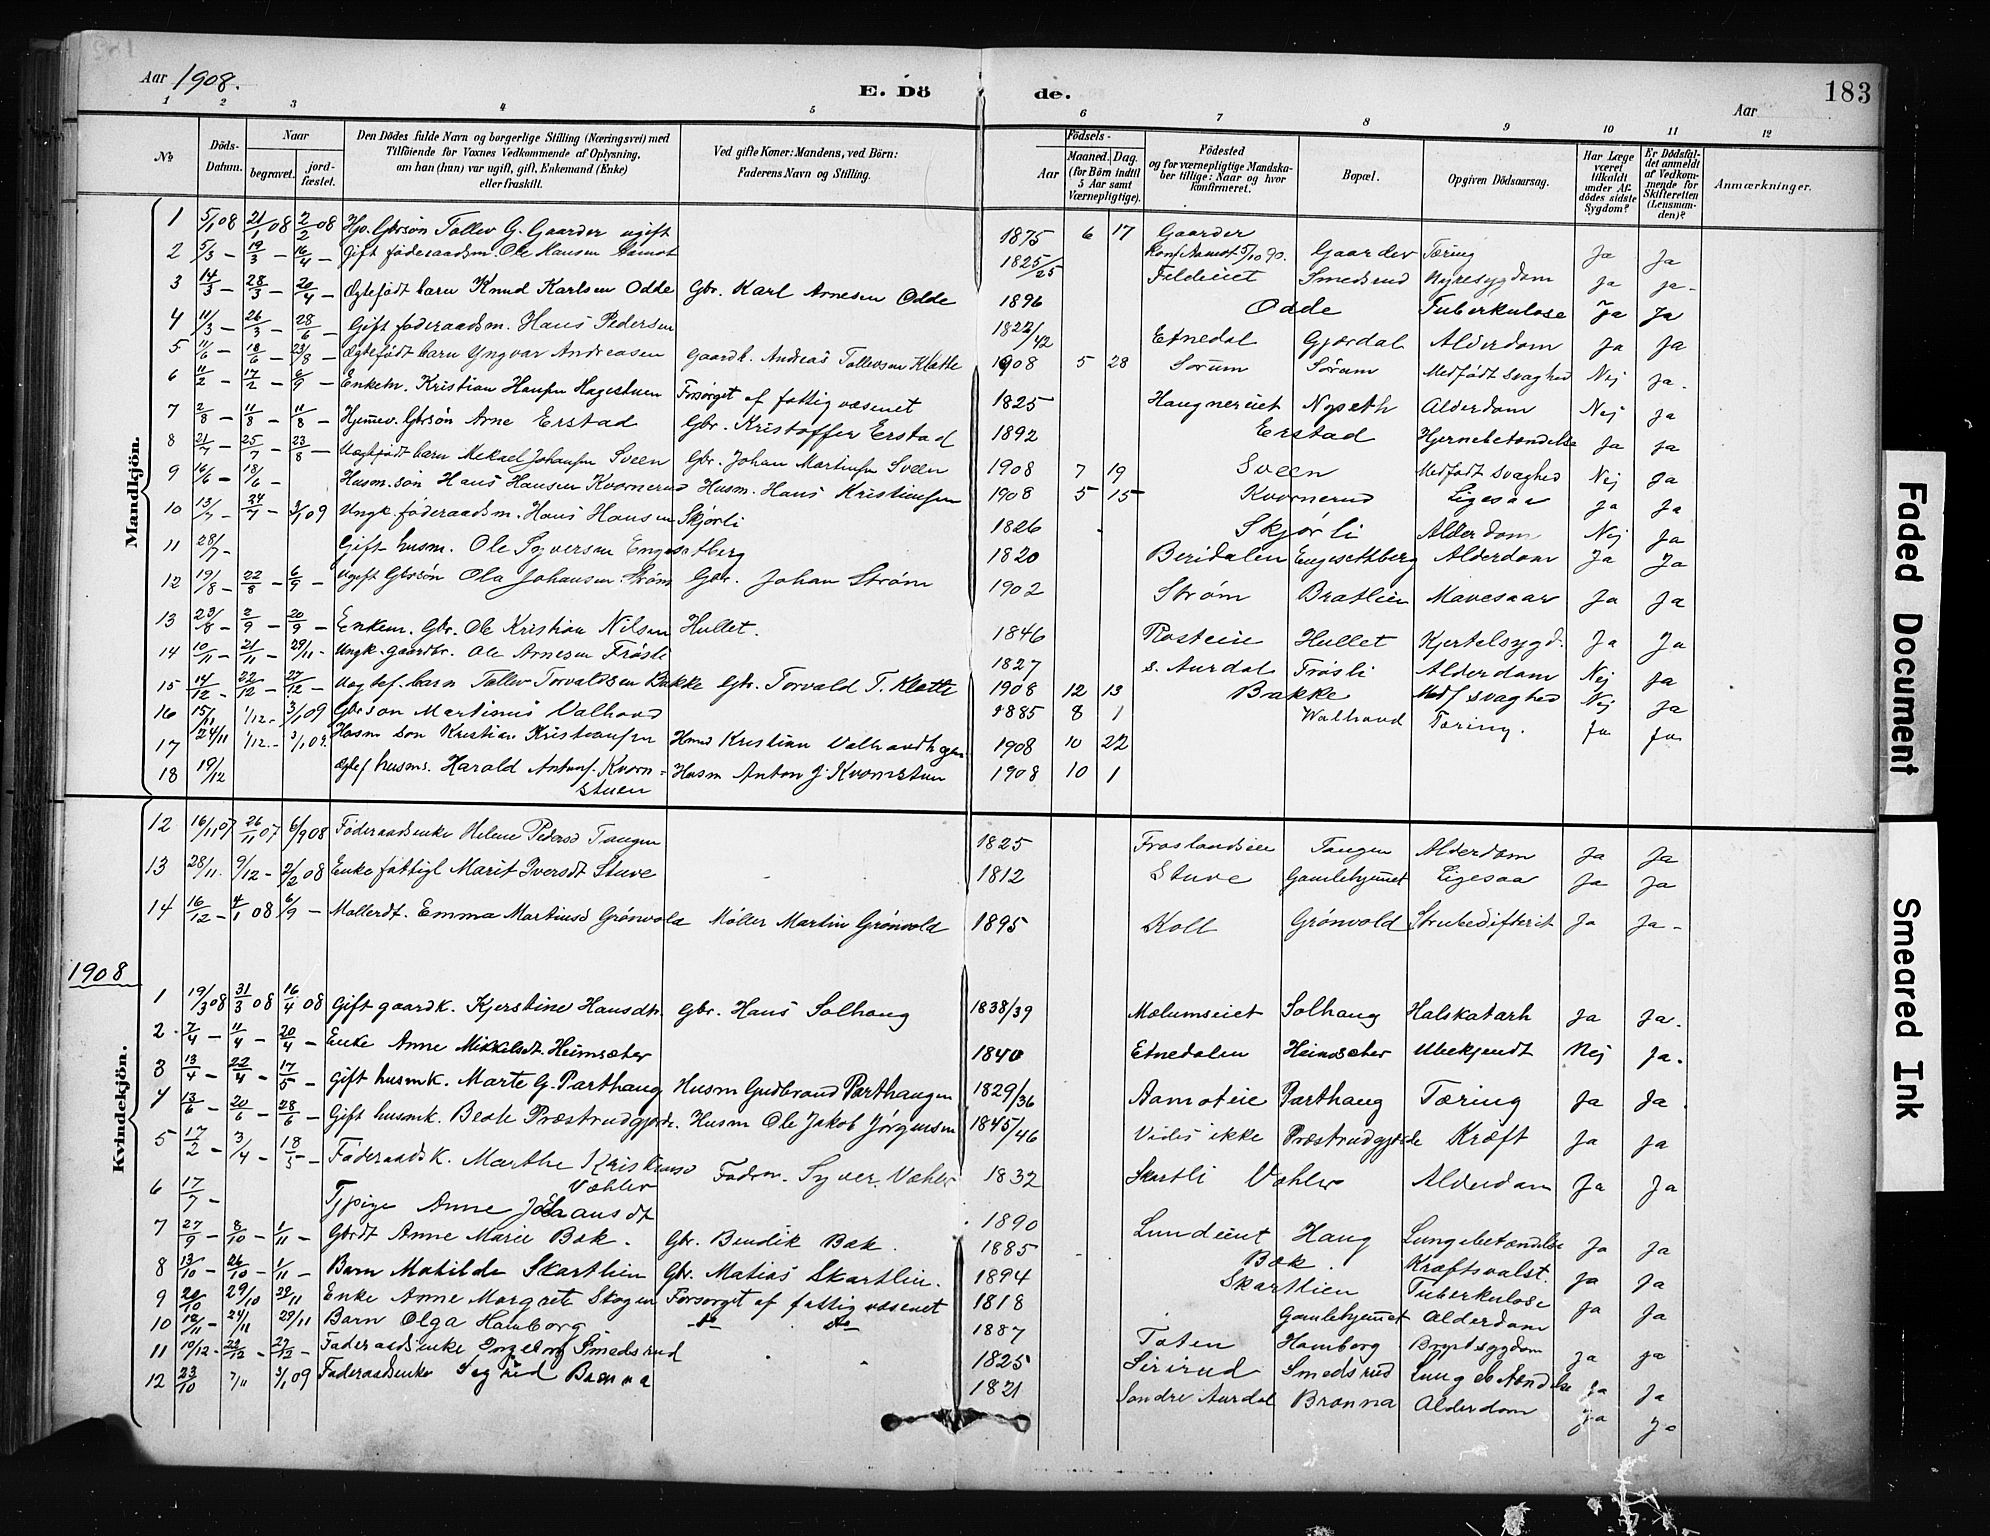 Aar 1908.
E. Döde.
Aar
183
1 2 3 4 5 6 7 8 9 10 11 12
No
Döds-Datum.
Naar
begravet.
jord-fæstet.
Den Dödes fulde Navn og borgerlige Stilling (Næringsvei) med Tilföiende for Voxnes Vedkommende af Oplysning, om han (hun) var ugift, gift, Enkemand (Enke) eller fraskilt.
Ved gifte Koner: Mandens, ved Börn: Faderens Navn og Stilling.
Födsels-
Aar
Maaned. Dag.
(for Börn indtil 5 Aar samt Værnepligtige).
Födested og for værnepligtige Mandskaber tillige: Naar og hvor konfirmeret.
Bopæl.
Opgiven Dödsaarsag.
Har Læge været tilkaldt under Afdödes sidste Sygdom?
Er Dödsfaldet anmeldt af Vedkommende for Skifteretten (Lensmanden)?
Anmærkninger.
Mandkjön.
1 5/1 08 21/1 08 2/2 08 Hjv. Gbrsön Tollev G. Gaarder ugift 1875 6 17 Gaarder Konf. Aamot 5/10 90. Gaarder Tæring Ja Ja
2 5/3 – 19/3 – 16/4 – Gift föderaadsm. Ole Hansen Aamot 1825/25 Fildeiet Smedsrud Nyresygdom Ja Ja
3 14/3 – 28/3 – 20/4 – Ægtefødt barn Knud Karlsen Odde Gbr. Karl Arnesen Odde 1896 Odde Tuberkulose Ja Ja
4 11/3 – 26/3 – 28/6 – Gift föderaadsm. Hans Pedersen 1822/42 Etnedal Gjørdal Alderdom Ja Ja
5 11/6 – 18/6 – 23/8 – Ægtefødt barn Yngvar Andreasen Gaardb. Andreas Tollevsen Klætte 1908 5 28 Sørum Sørum Medfødt svaghed Nej Ja
6 11/2 – 17/2 – 6/9 – Enkem. Kristian Hansen Hagestuen Forsørget af fattigvæsenet 1825 Haugnereiet Nyseth Alderdom Nej Ja
7 2/8 – 11/8 – 11/8 – Hjemev. Gbrsön Arne Erstad Gbr. Kristoffer Erstad 1892 Erstad Hjernebetændelse Ja Ja
8 21/7 – 25/7 – 23/8 – Uægtefødt barn Mekael Johansen Sveen Gbr. Johan Martinsen Sveen 1908 7 19 Sveen Medfødt svaghed Nej Ja
9 16/6 – 18/6 – Husm. søn Hans Hansen Kvornerud Husm. Hans Kristiansen 1908 5 15 Kvornerud Ligesaa Ja Ja
10 13/7 – 24/7 – 3/1 09 Ungk. föderaadsm. Hans Hansen Skjørli 1826 Skjørli Alderdom Nej Ja
11 28/7 – Gift husm. Ole Syversen Engesetberg 1820 Beridalen Engesethberg Alderdom Ja Ja
12 19/8 – 22/8 – 6/9 – Ugift Gbrsön Ola Johansen Strøm Gbr. Johan Strøm 1902 Strøm Bratlien Mavesaar Ja Ja
13 23/8 – 2/9 – 20/9 – Enkem. Gbr. Ole Kristian Nilsen Hullet. 1846 Rosteie Hullet Kjertelsygd. Ja Ja
14 10/11 – 21/11 – 29/11 – Ungk. gaardbr. Ole Arnesen Frøsli 1827 s. Aurdal Frøsli Alderdom Nej Ja
15 14/12 – 22/12 – 27/12 – Uægtef. barn Tollev Torvaldsen Bakke Gbr. Torvald T. Klætte 1908 12 13 Bakke Medf svaghed Nej Ja
16 15/11 1/12 – 3/1 09 Gbrsøn Martinus Valhovd 1885 8 1 Walhovd Tæring. Ja Ja
17 24/11 1/12 – 3/1 09. Husm søn Kristian Kristiansen Husm Kristian Valhovdhagen 1908 10 22
18 19/12 Ægtef husms. Harald Antonsf. Kvorn-stuen Husm Anton J. Kvornstuen 1908 10 1
Kvindekjön.
12 16/11 07 26/11 07 6/9 08 Føderaadsenke Helene Pedersd Tangen 1825 Froslandseie Tangen Alderdom Ja Ja
13 28/11. 9/12 – 2/2 08 Enke fattigl Marit Iversdt Stuve 1812 Stuve Gamlehjemmet Ligesaa Ja Ja
14 16/12 – 4/1 08 6/9 – Møllerdt. Emma Martinsd Grønvold Møller Martin Grønvold 1895 Koll Grønvold Strubedifterit Ja Ja –
1908
1 19/3 08 31/3 08 16/4 08 Gift gaardk. Kjerstine Hansdtr. Gbr. Hans Solhaug 1838/39 Mælumseiet Solhaug Halskatarh Ja Ja.
2 7/4 – 11/4 – 20/4 – Enke Anne Mikkelsdt. Heimsæter 1840 Etnedalen Heimsæter Ubekjendt Nej Ja.
3 13/4 – 22/4 – 17/5 – Gift husmk. Marte G. Parthaug Husm Gudbrand Parthaugen 1829/36 Aamoteie Parthaug Tæring Ja Ja.
4 13/6 – 20/6 – 28/6 – Gift husmk. Beate Præstrudgjerde. Husm Ole Jakob Jørgensen 1845/46 Vides ikke Præstrudgjerde Kræft Ja Ja
5 17/2 – 3/4 – 18/5 – Føderaadsk. Marthe Kristiansd Væhler Fødrm. Syver. Væhler 1832 Skartli Vøhler Alderdom Ja Ja
6 17/7 – Tjpige Anne Johansdt 1890 Lundeiet Haug Lungebetændelse Ja Ja
7 27/9 – 8/10 – 1/11 – Gbrdt Anne Marie Bøk. Gbr. Bendik Bøk. 1885 Bøk. Kræftsvulst. Ja Ja
8 13/10 – 26/10 – 1/11 – Barn Matilde Skartlien Gbr. Matias Skartlien. 1894 Skartlien Tuberkulose Ja Ja
9 20/10 29/10 29/11 Enke Anne Margrete Skogen Forsørget af fattigvæsenet 1818 Gamlehjemmet Alderdom
10 12/11 – 24/11 29/11 Barn Olga Hamborg 1887 Toten Hamborg Brystsygdom Ja Ja
11 10/12 – 22/12 – 27/12 – Føderaadsenke Ingeborg Smedsrud 1825 Sirirud Smedsrud Lungebetændelse Ja Ja
12 23/10 7/11 3/1 09 Føderaadsenke Sigrid Brenna 1821 Søndre Aurdal Brønna Alderdom Ja Ja
Faded Document
Smeared Ink